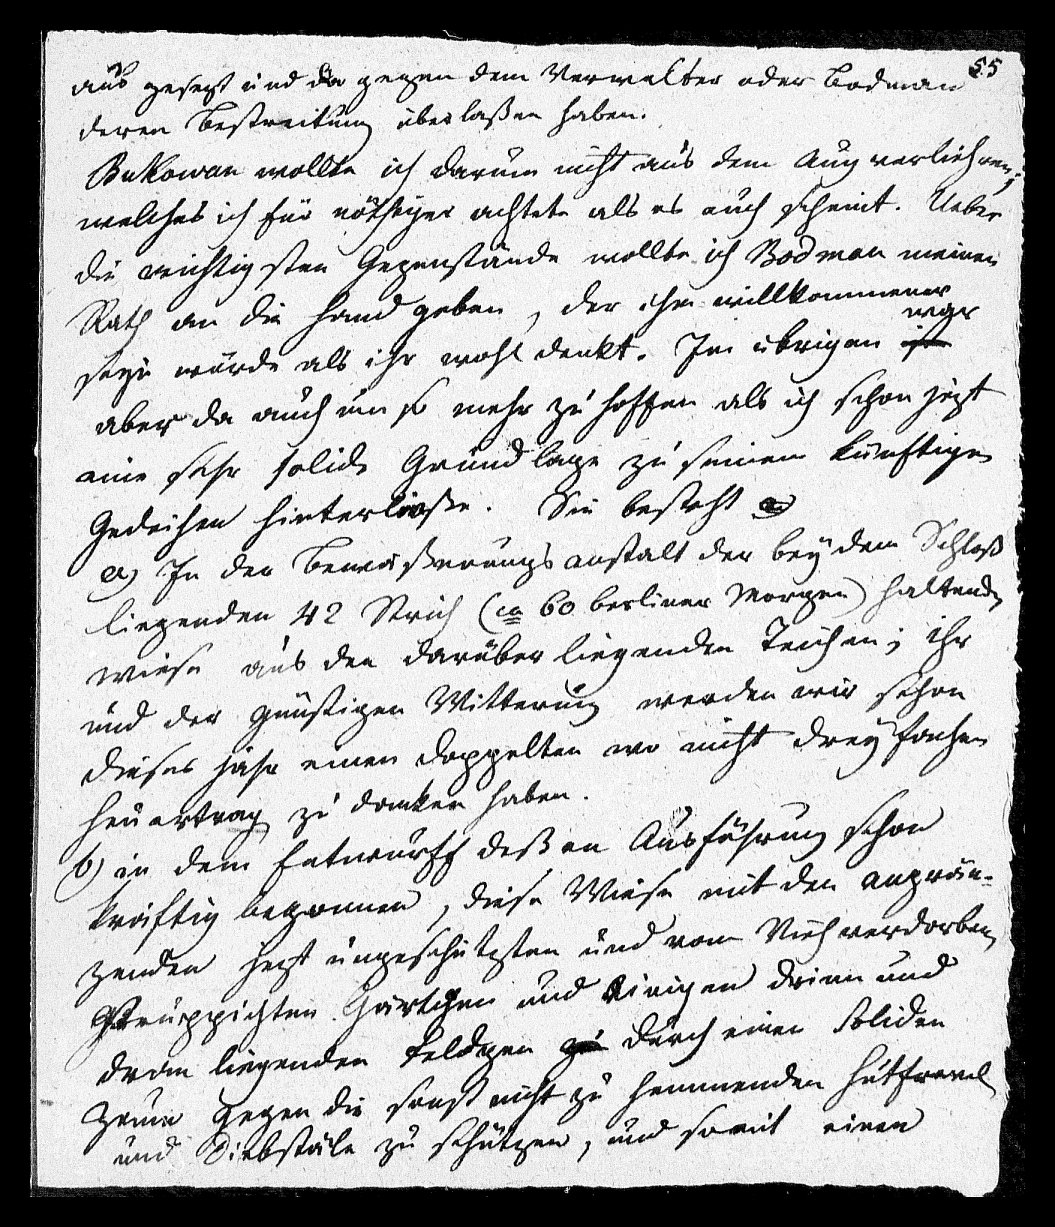 55
aus gesezt und da gegen dem Verwalter oder Bodman
deren Bestreitung überlaßen haben.
Bukowan wollte ich darum nicht aus dem Aug verliehren,
welches ich für nöthiger achtete als es auch scheint. Ueber
die wichtigsten Gegenstände wollte ich Bodman meinen
Rath an die Hand geben, der ihm willkommener
seyn würde als ihr wohl denkt. Im übrigen ist war
aber da auch um so mehr zu hoffen als ich schon jezt
eine sehr solide Grundlage zu seinem künftigen
Gedeihen hinterließe. Sie besteht
a) In der Bewäßerungsanstalt der bey dem Schloß
liegenden 42 Strich (ca 60 berliner Morgen) haltenden
Wiese aus den darüber liegenden Teichen; ihr
und der günstigen Witterung werden wir schon
dieses Jahr einen doppelten wo nicht dreyfachen
Heuertrag zu danken haben.
b) in dem Entwurff deßen Ausführung schon
kräftig begonnen, diese Wiese mit den angrän-
zenden jezt ungeschützten und vom Vieh verdorbenen
Gärtchen und einigen drinn und
dran liegenden Feldgen zu durch einen soliden
Zaun gegen die sonst nicht zu hemmenden Hutfrevel
und Diebstäle zu schützen, und somit einen